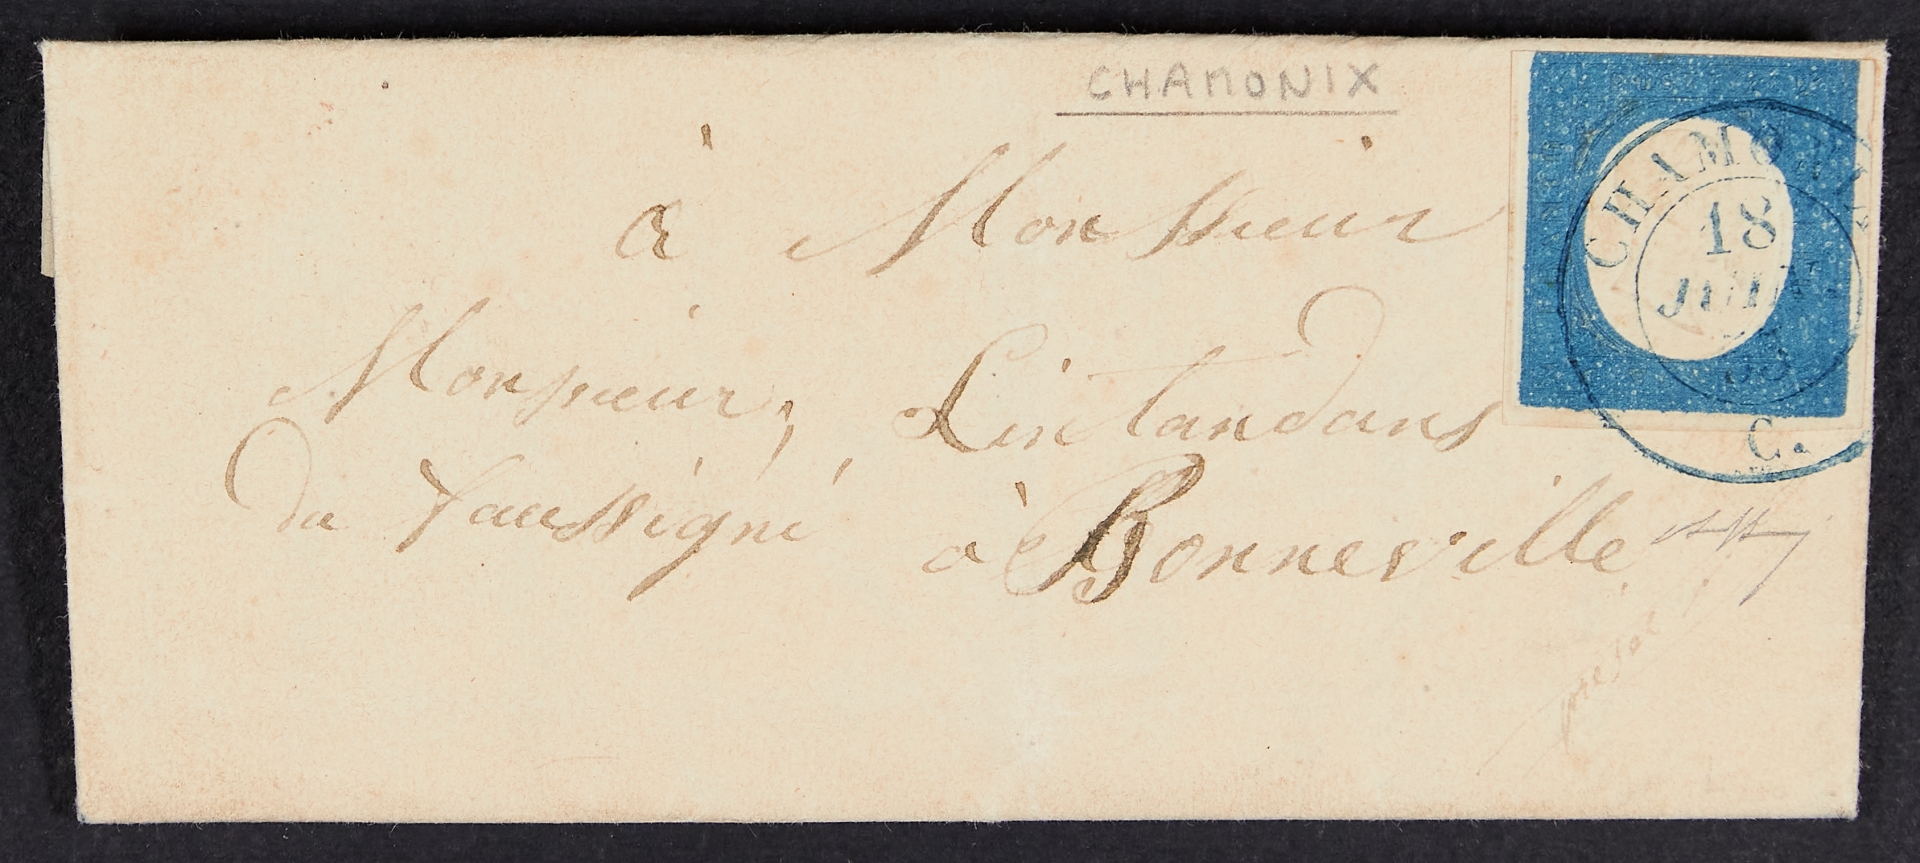 CHAMONIX
à Monsieur
Monsieur, Lintandans
du Faussigni,
à Bonneville
CHAMO
18
JUIN
53
C.